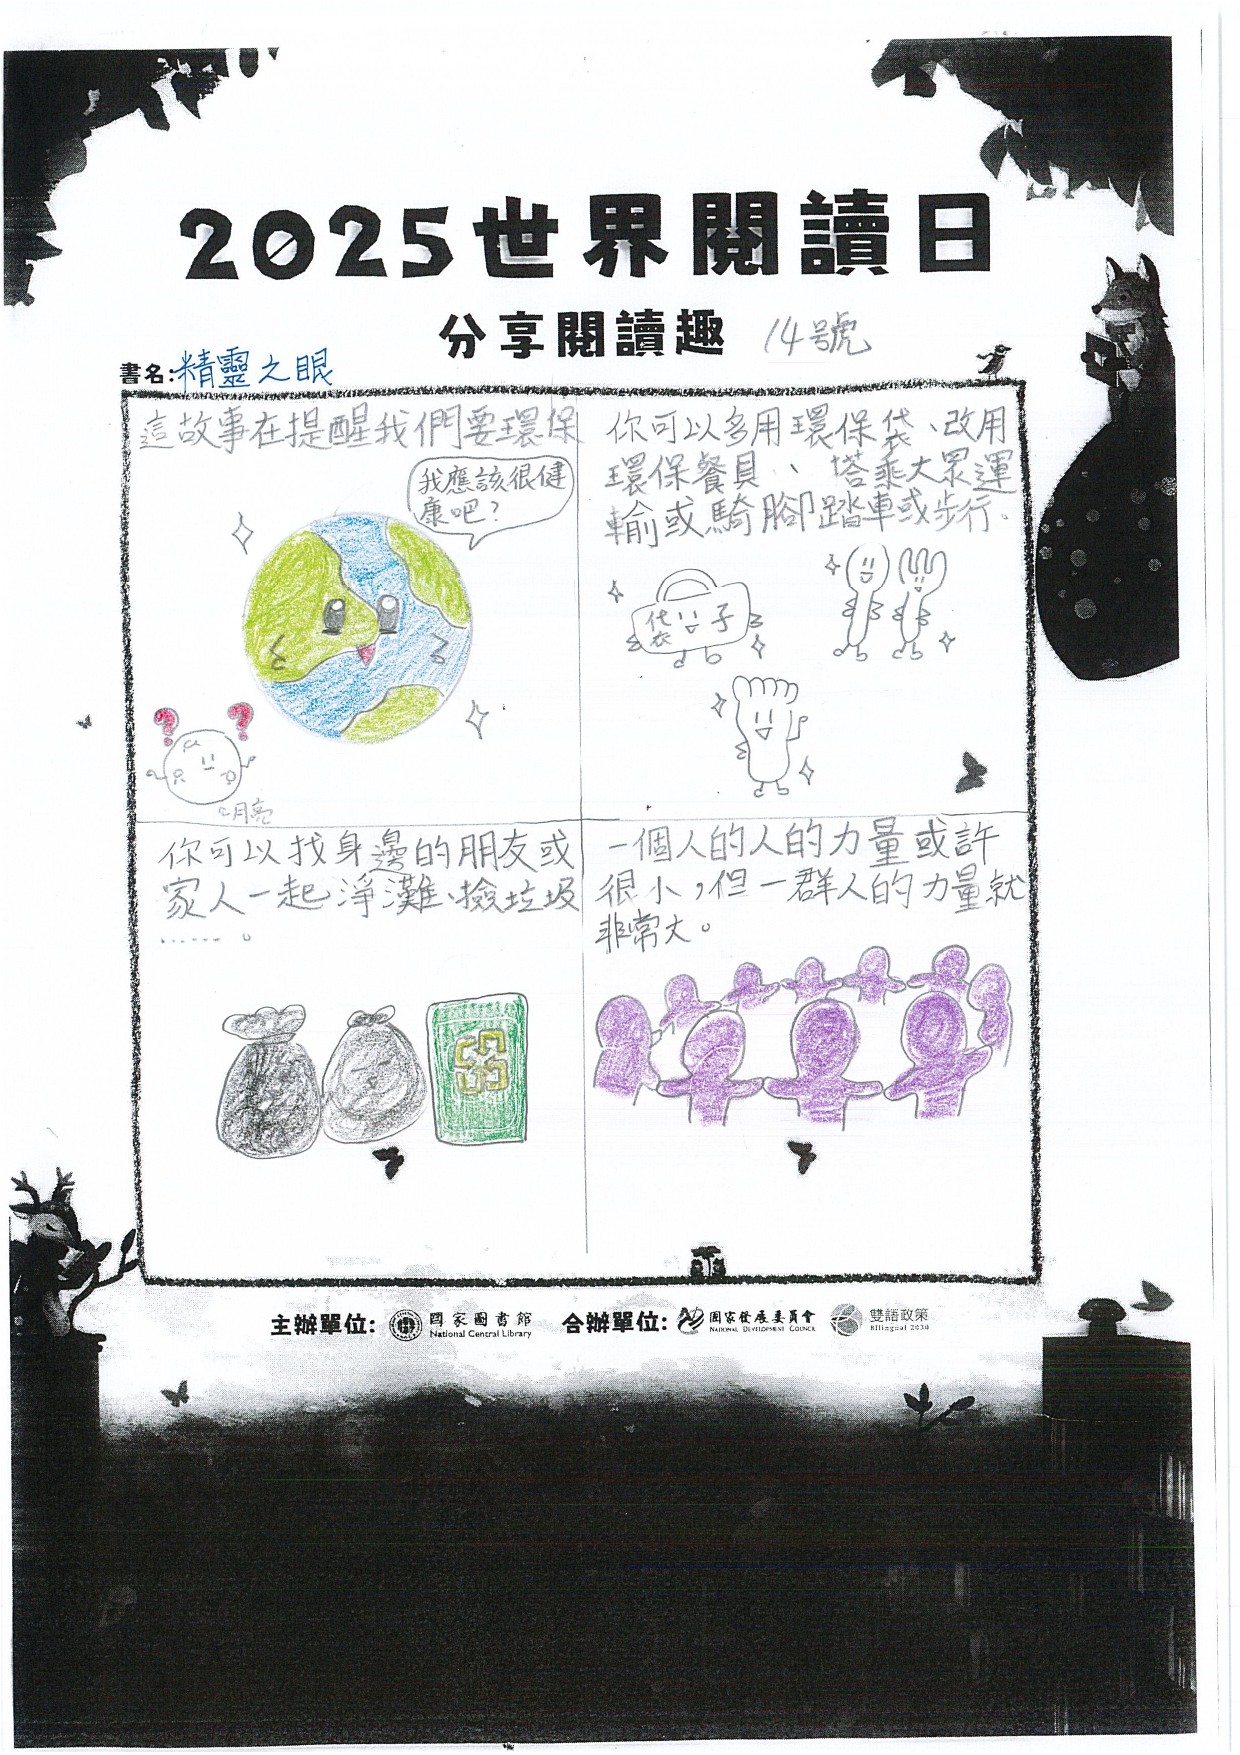 2025世界閱讀日
分享閱讀趣 14號
書名:精靈之眼
這故事在提醒我們要環保
我應該很健
康吧?
月亮
你可以多用環保袋、改用
環保餐具、塔乘大眾運
輸或騎腳踏車或步行.
袋子
你可以找身邊的朋友或
家人一起淨灘、撿垃圾
……。
一個人的人的力量或許
很小,但一群人的力量就
非常大。
主辦單位: 國家圖書館 National Central Library 合辦單位: 國家發展委員會 NATIONAL DEVELOPMENT COUNCIL 雙語政策 Bilingual 2030